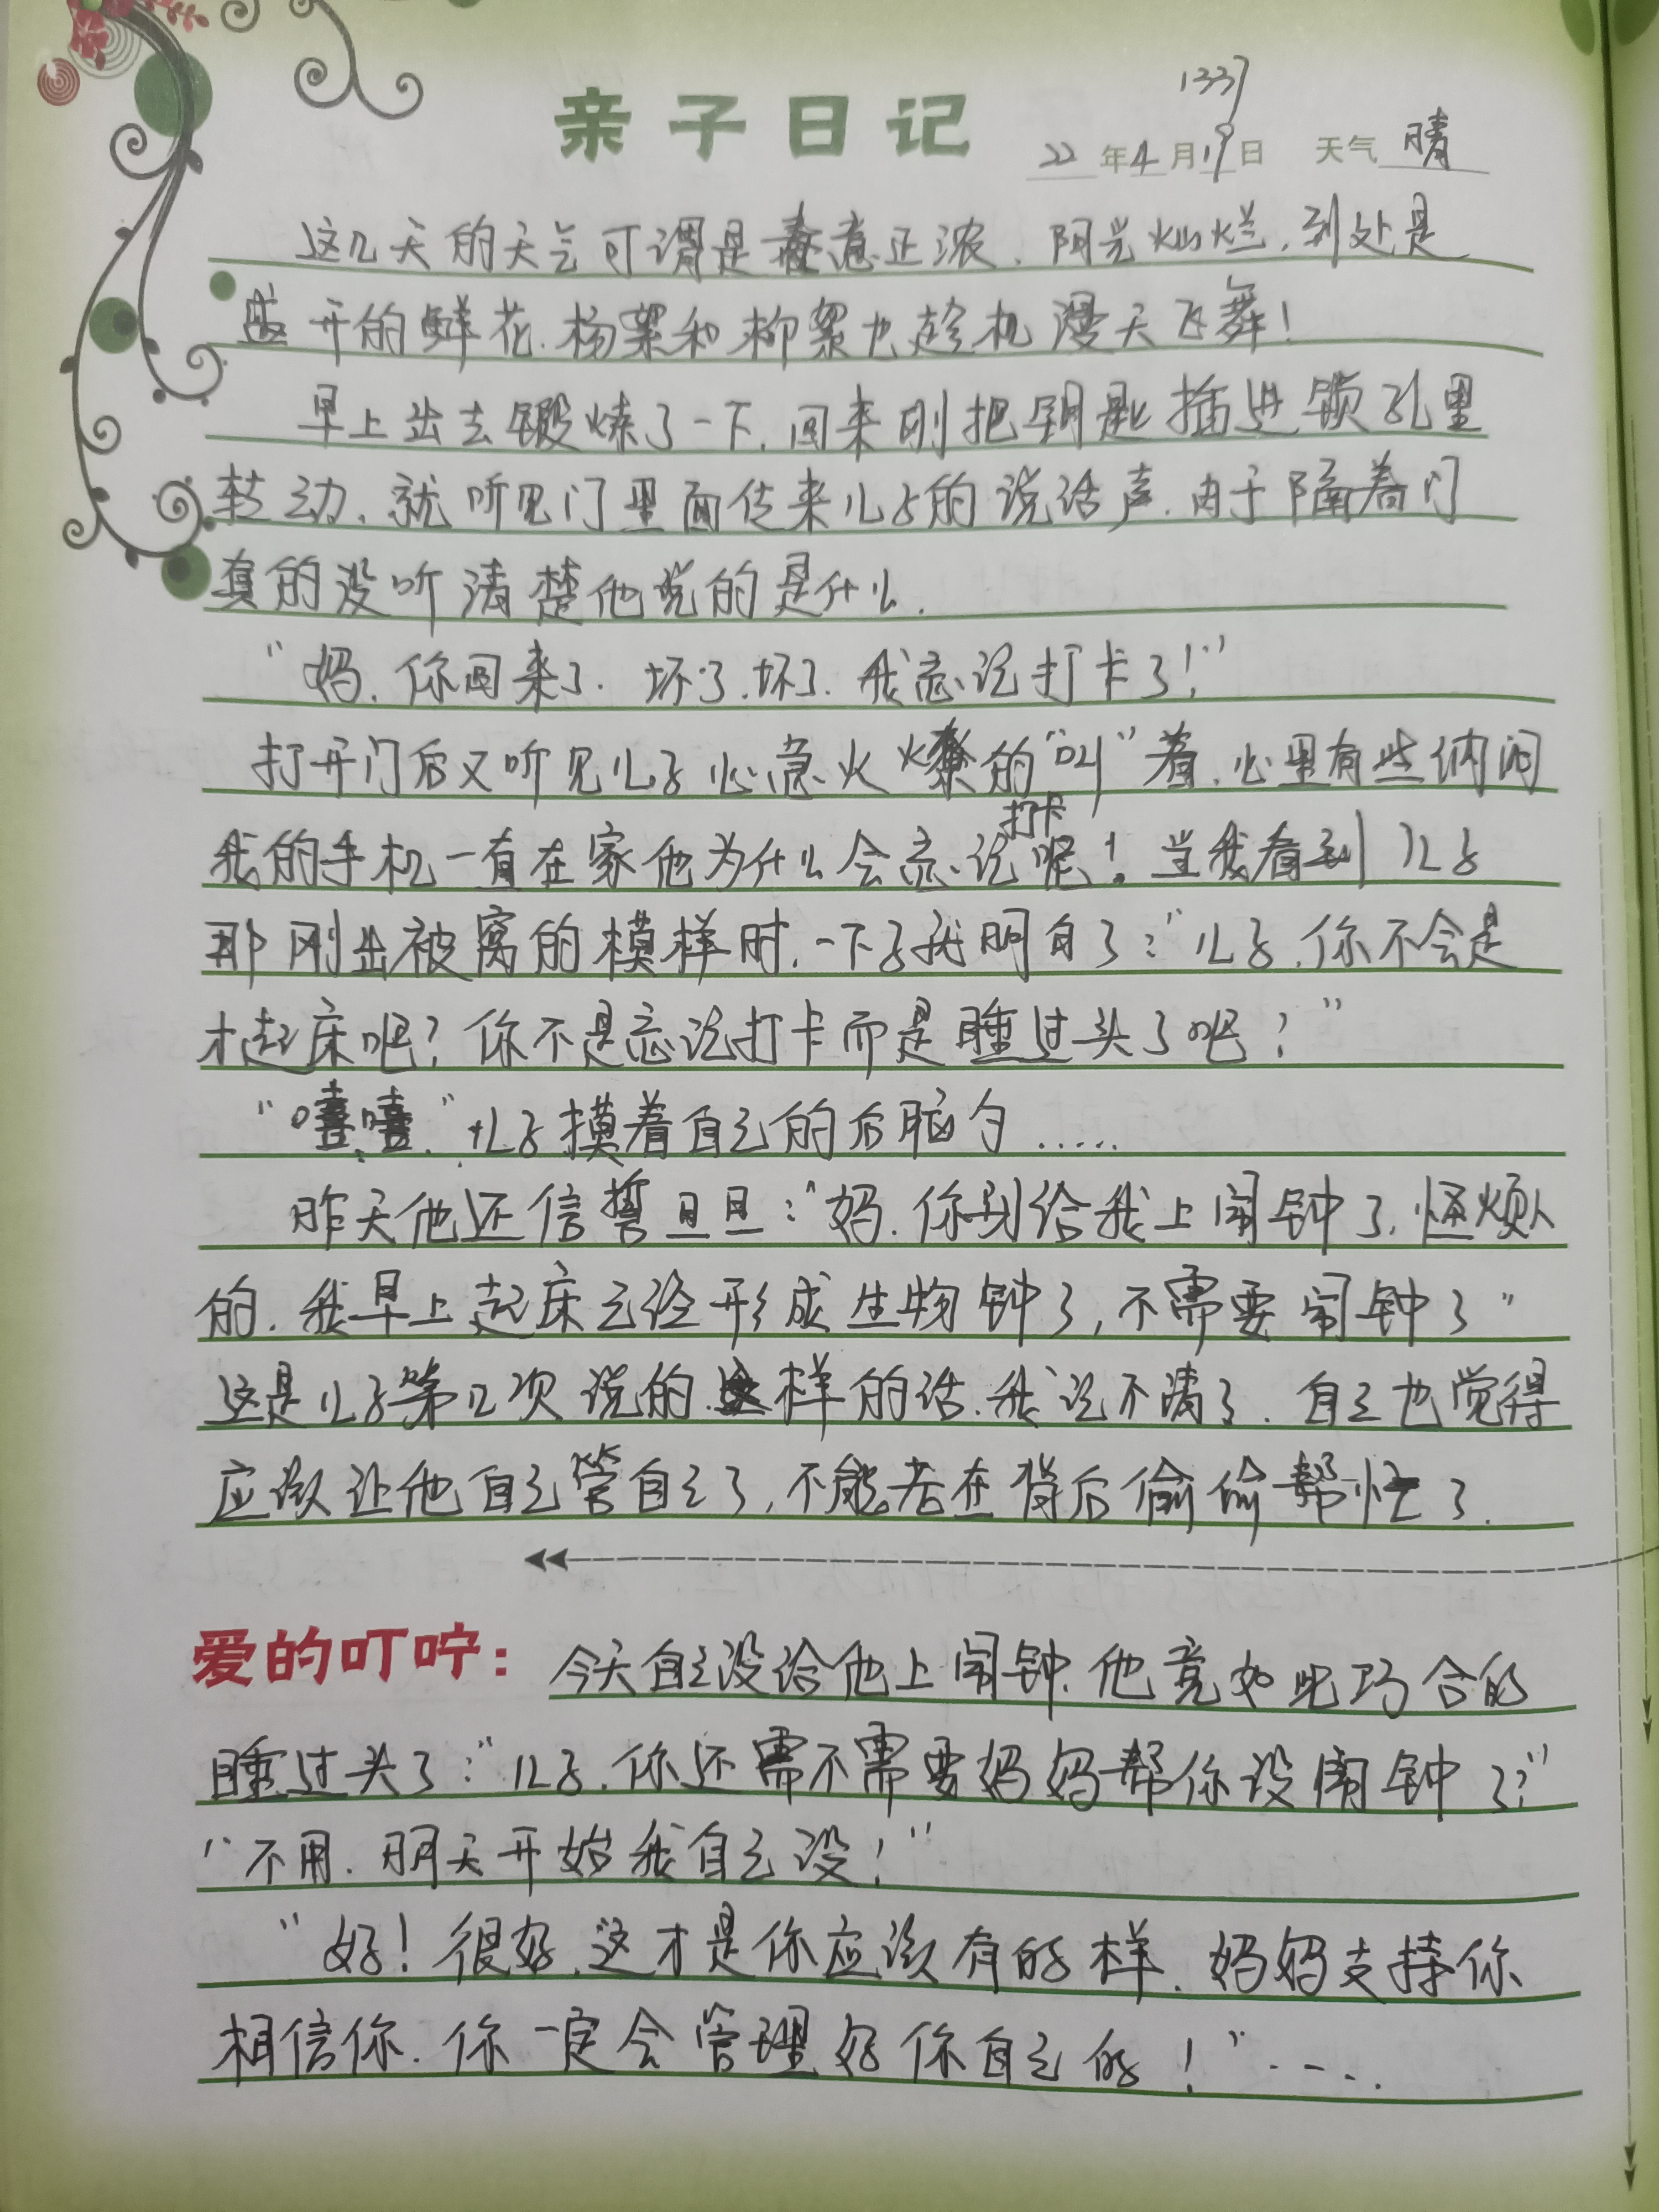 1337
亲子日记 22年4月19日 天气 晴
这几天的天气可谓是春意正浓、阳光灿烂,到处是
盛开的鲜花、杨絮和柳絮也趁机漫天飞舞!
早上出去锻炼了一下,回来刚把钥匙插进锁孔里
转动、就听见门里面传来儿子的说话声,由于隔着门
真的没听清楚他说的是什么.
“妈,你回来了.坏了,坏了.我忘记打卡了!”
打开门后又听见儿子心急火燎的“叫”着,心里有些纳闷
我的手机一直在家他为什么会忘记打卡呢!当我看到儿子
那刚出被窝的模样时,一下子就明白了:“儿子,你不会是
才起床吧?你不是忘记打卡而是睡过头了吧?”
“嘻嘻.”儿子摸着自己的后脑勺……
昨天他还信誓旦旦:“妈,你别给我上闹钟了,怪烦人
的.我早上起床已经形成生物钟了,不需要闹钟了”
这是儿子第几次说的这样的话,我记不清了.自己也觉得
应该让他自己管自己了,不能老在背后偷偷帮忙了.
爱的叮咛:今天自己没给他上闹钟,他竟如此巧合的
睡过头了:“儿子,你还需不需要妈妈帮你设闹钟了?”
“不用.明天开始我自己设!”
“好!很好,这才是你应该有的样.妈妈支持你
相信你.你一定会管理好你自己的!”……